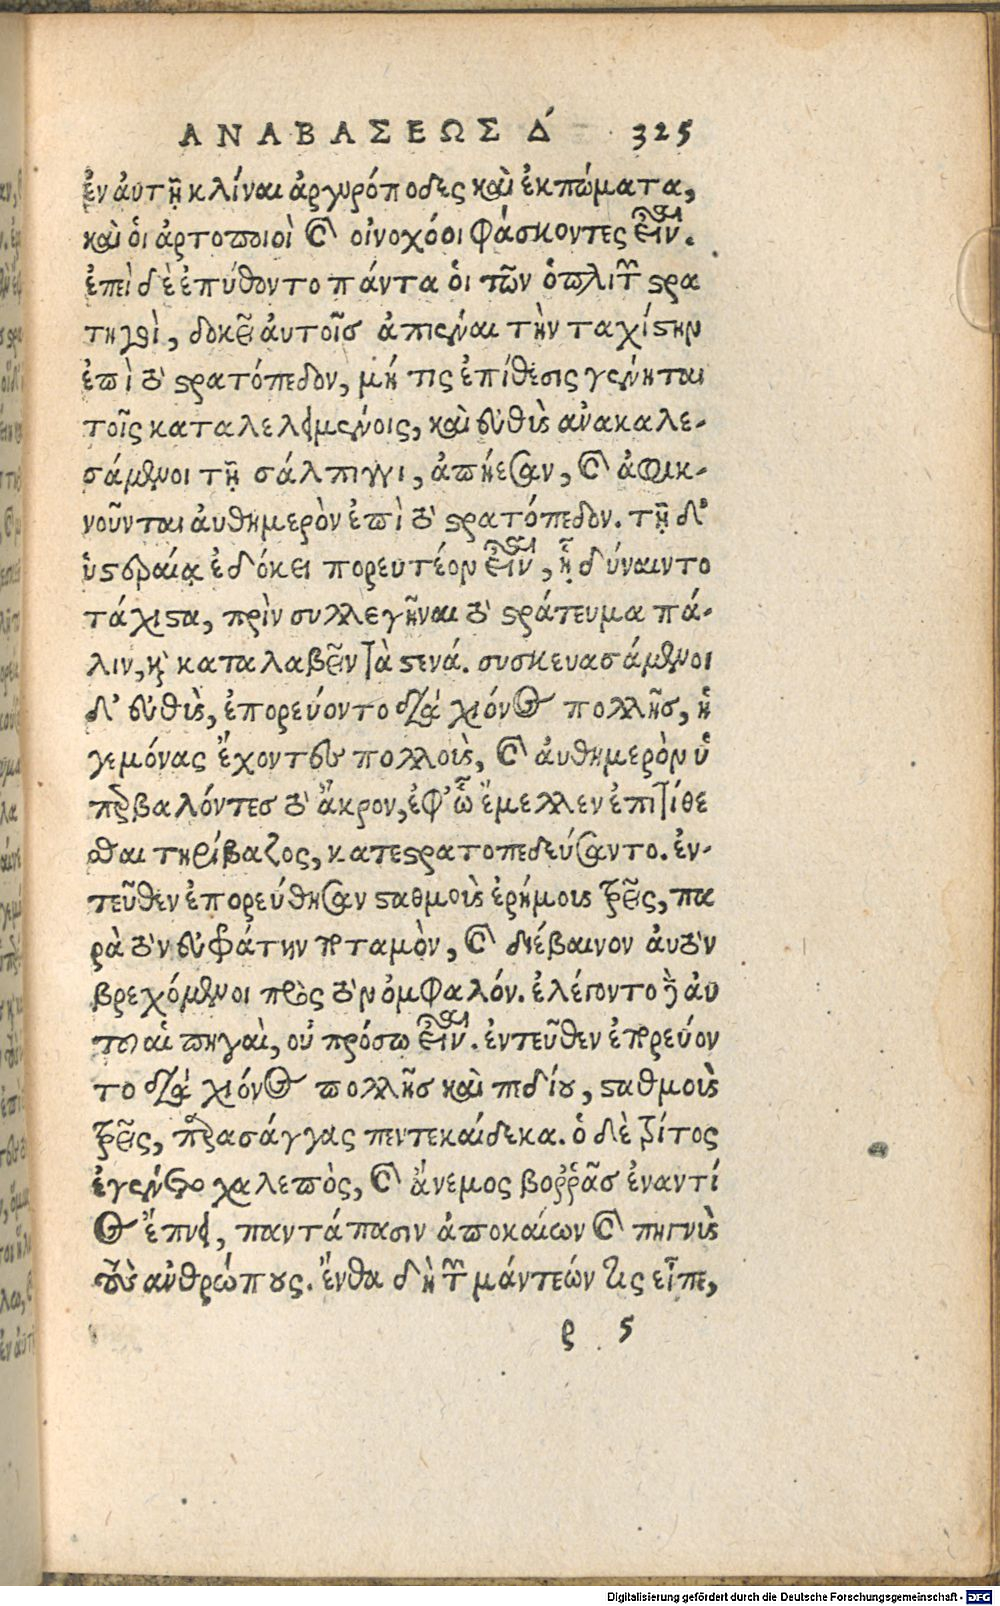 ΑΝΑΒΑΣΕΩΣ Δ΄ 325
ἐν αὐτῇ κλίναι ἀργυρόποδες καὶ ἐκπώματα,
καὶ οἱ ἀρτοποιοὶ καὶ οἰνοχόοι φάσκοντες εἶναι.
ἐπεὶ δὲ ἐπύθοντο πάντα οἱ τῶν ὁπλιτῶν στρα
τηγοὶ, δοκεῖ αὐτοῖς ἀπιέναι τὴν ταχίστην
ἐπὶ τὸ στρατόπεδον, μή τις ἐπίθεσις γένηται
τοῖς καταλελειμμένοις, καὶ εὐθὺς ἀνακαλε-
σάμενοι τῇ σάλπιγγι, ἀπῄεσαν, καὶ ἀφικ-
νοῦνται αὐθημερὸν ἐπὶ τὸ στρατόπεδον. τῇ δ'
ὑστεραίᾳ ἐδόκει πορευτέον εἶναι, ᾗ δύναιντο
τάχιστα, πρὶν συλλεγῆναι τὸ στράτευμα πά-
λιν, καὶ καταλαβεῖν τὰ στενά. συσκευασάμενοι
δ' εὐθὺς, ἐπορεύοντο διὰ χιόνος πολλῆς, ἡ
γεμόνας ἔχοντες πολλοὺς, καὶ αὐθημερὸν ὑ
περβαλόντες τὸ ἄκρον, ἐφ' ᾧ ἔμελλεν ἐπιτίθε
σθαι τηρίβαζος, κατεστρατοπεδεύσαντο. ἐν-
τεῦθεν ἐπορεύθησαν σταθμοὺς ἐρήμους τρεῖς, πα
ρὰ τὸν εὐφράτην ποταμὸν, καὶ διέβαινον αὐτὸν
βρεχόμενοι πρὸς τὸν ὀμφαλόν. ἐλέγοντο δὲ αὐ
τοῦ αἱ πηγαὶ, οὐ πρόσω εἶναι. ἐντεῦθεν ἐπορεύον
το διὰ χιόνος πολλῆς καὶ πεδίου, σταθμοὺς
τρεῖς, παρασάγγας πεντεκαίδεκα. ὁ δὲ τρίτος
ἐγένετο χαλεπὸς, καὶ ἄνεμος βοῤῥᾶς ἐναντί
ος ἔπνει, παντάπασιν ἀποκαίων καὶ πηγνὺς
τοὺς ἀνθρώπους. ἔνθα δὴ τῶν μάντεών τις εἶπε,
ϱ 5
Digitalisierung gefördert durch die Deutsche Forschungsgemeinschaft - DFG